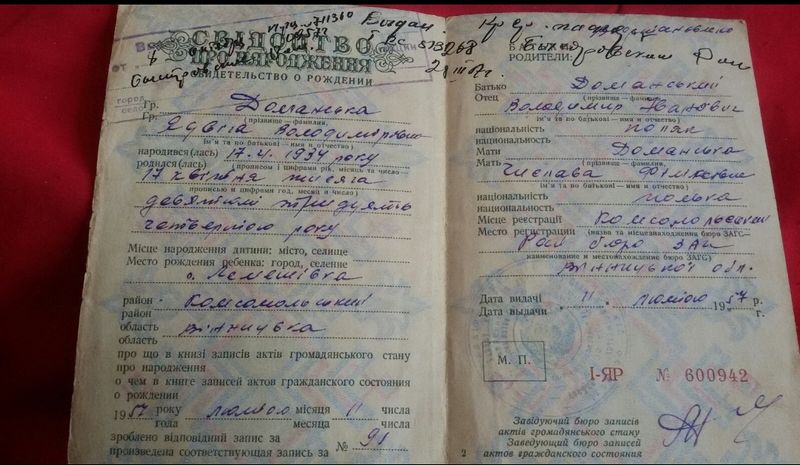 СВІДОЦТВО
ПРО НАРОДЖЕННЯ
СВИДЕТЕЛЬСТВО О РОЖДЕНИИ
город
Гр. Доманська
Гр. (прізвище — фамилия,
Ядвіга Володимирівна
ім'я та по батькові — имя и отчество)
народився(лась) 17.IV. 1934 року
родился(лась) (прописом і цифрами рік, місяць та число —
17 квітня тисяча
прописью и цифрами год, месяц и число)
девятсот тридцять
четвертого року
Місце народження дитини: місто, селище
Место рождения ребенка: город, селение
с. Лемешівка
район Комсомольський
район
область Вінницька
область
про що в книзі записів актів громадянського стану
про народження
о чем в книге записей актов гражданского состояния
о рождении
1957 року лютого місяця 11 числа
года месяца числа
зроблено відповідний запис за № 91
произведена соответствующая запись за
БАТЬКИ
РОДИТЕЛИ:
Батько Доманський
Отец (прізвище — фамилия)
Володимир Іванович
(ім'я та по батькові — имя и отчество)
національність поляк
национальность
Мати Доманська
Мать (прізвище — фамилия)
Числава
(ім'я та по батькові — имя и отчество)
національність полька
национальность
Місце реєстрації Комсомольський
Место регистрации (назва та місцезнаходження бюро ЗАГС—
Рай бюро ЗАГ
наименование и местонахождение бюро ЗАГС)
Вінницької обл.
Дата видачі „ 11 „ лютого 1957 р.
Дата выдачи г.
М. П.
I-ЯР № 600942
Завідуючий бюро записів
актів громадянського стану
Заведующий бюро записей
актов гражданского состояния
2